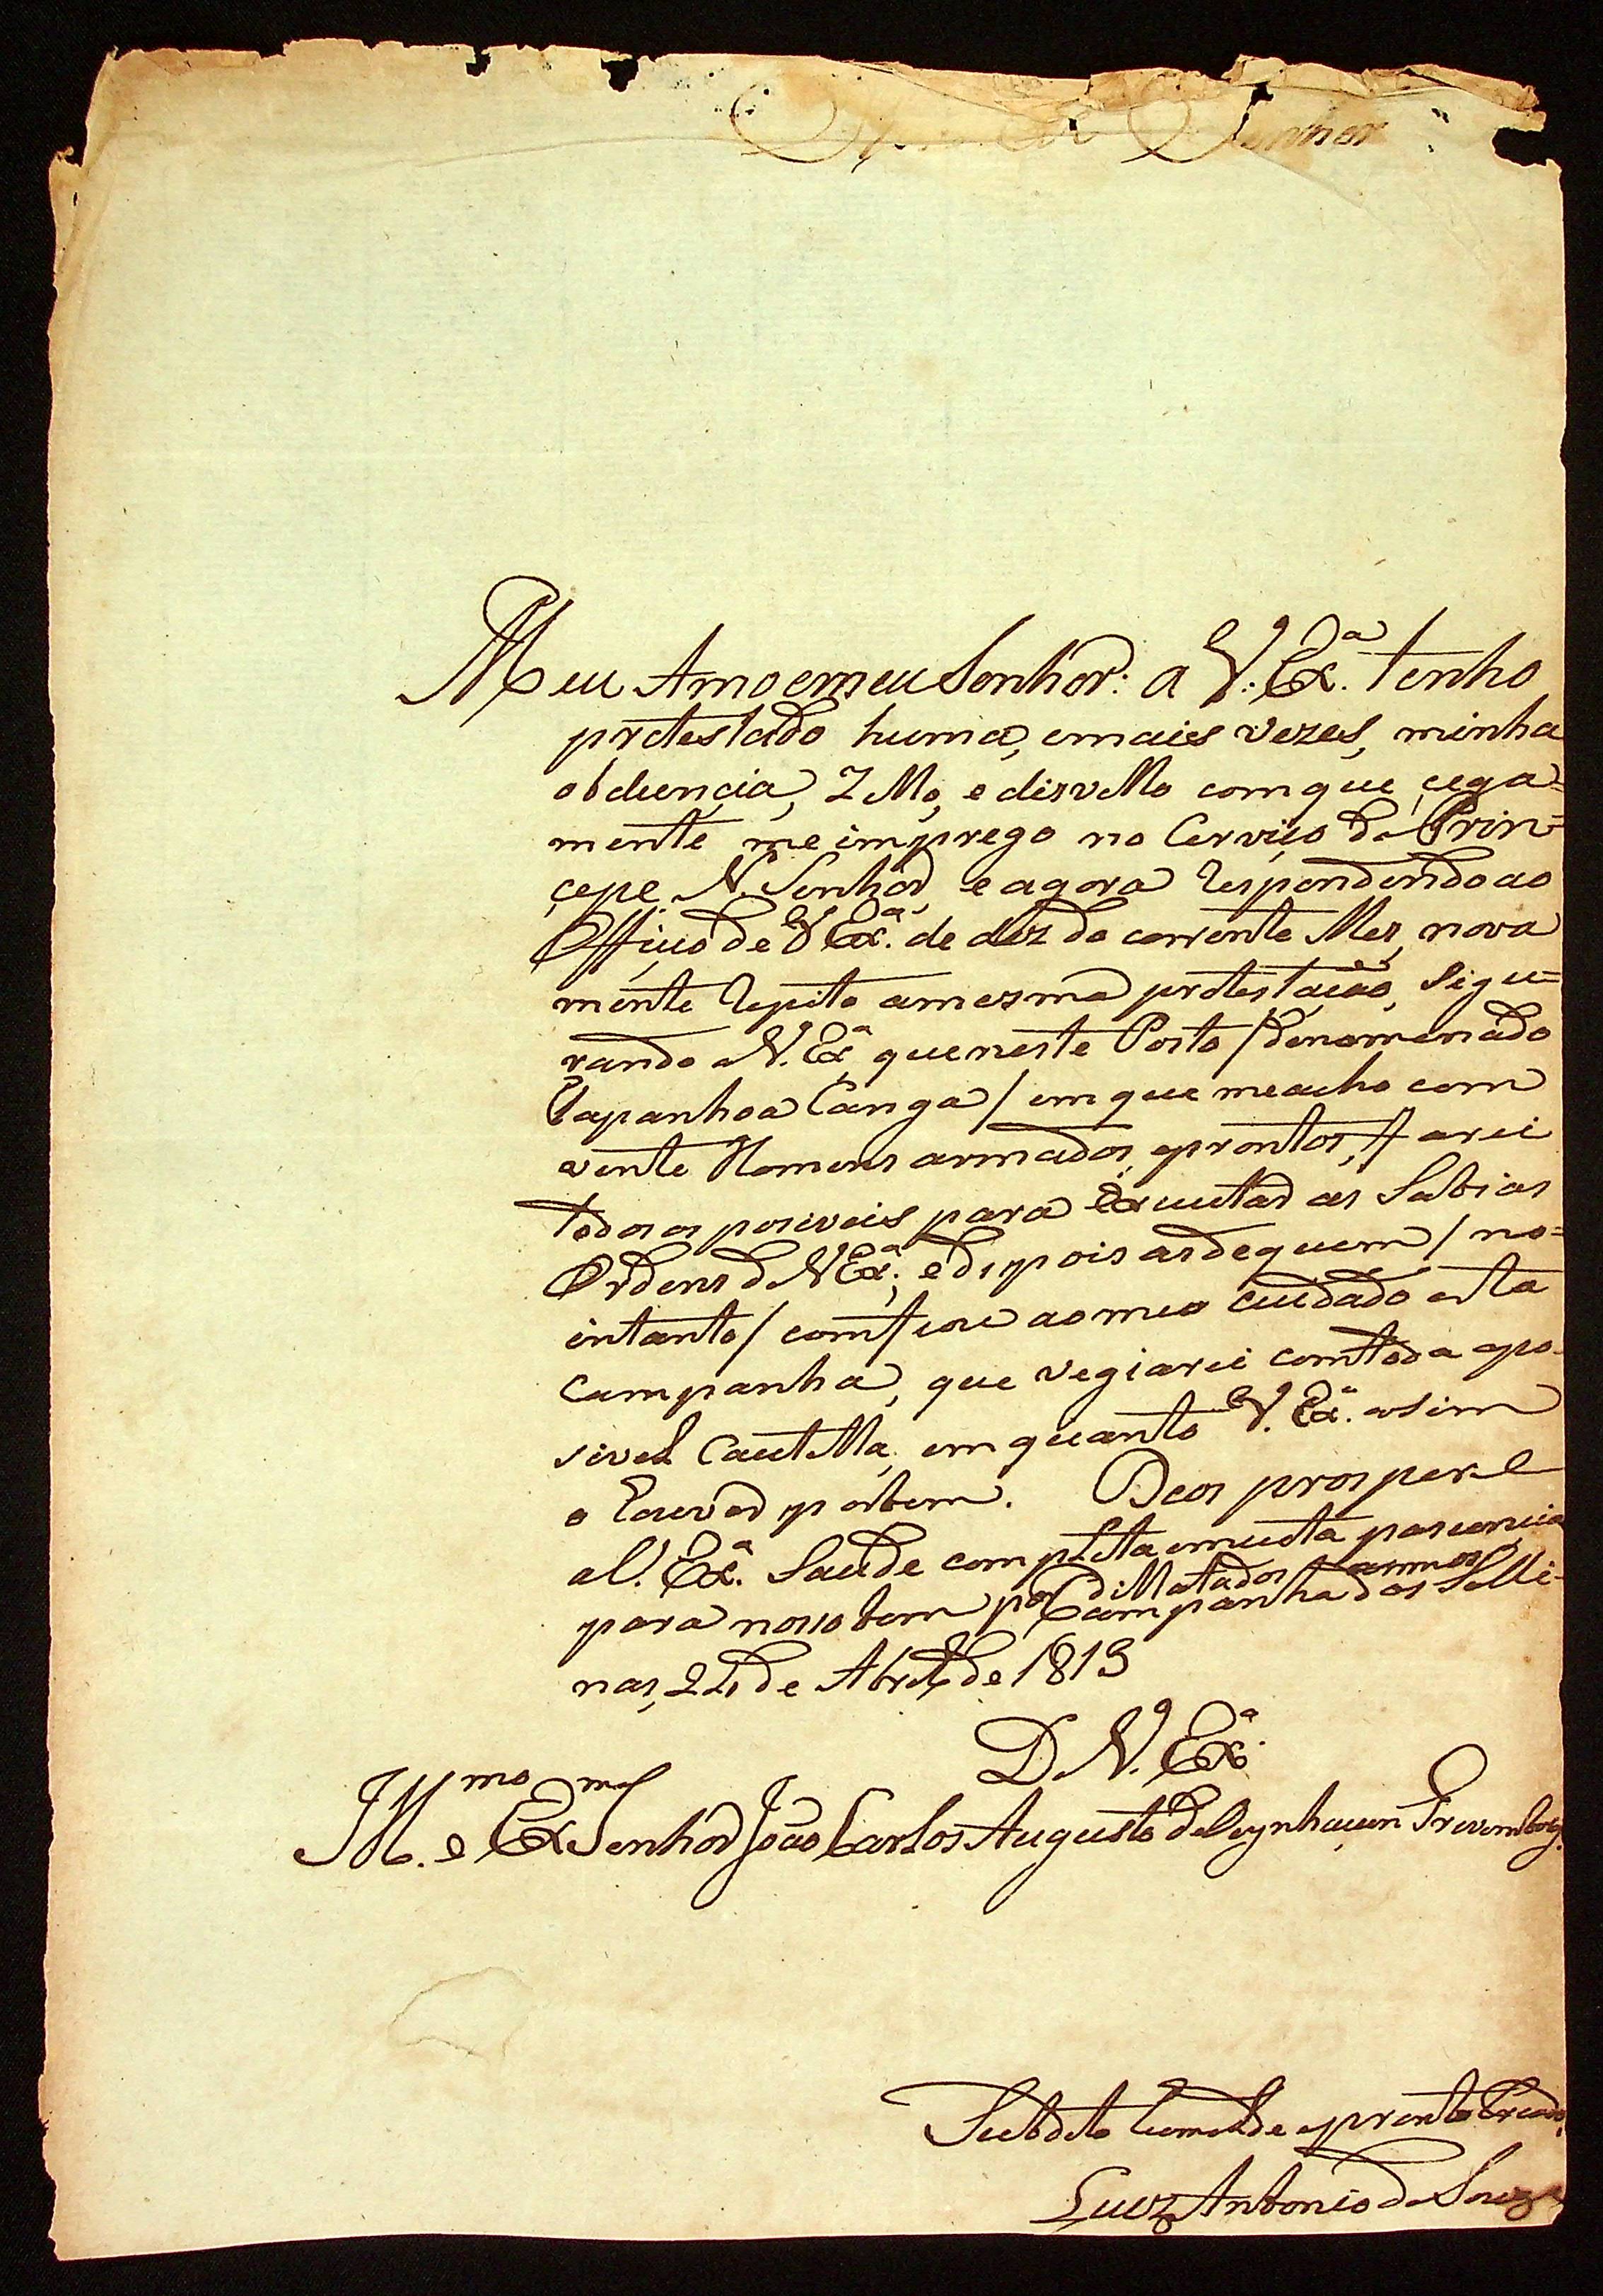 Senhor
Meu Amo e meu Senhor: a V. Ex.ª tenho
protestado huma, e mais vezes, minha
obdiençia, Zello, e disvello com que çega=
mente me imprego no Cerviço do Prin=
çepe N. Senhor, e agora respondendo ao
Offiçio de V Ex.ª de dez do corrente Mes, nova
mente repito a mesma protestação, sigu=
rando a V. Exª que neste Posto / denomenado
Tapanhoa Canga / em que me acho com
vente Homens armados, e prontos, farei
todos os posiveis para Executar as Sabias
Ordens de V Ex.ª, e dipois as de quem / no=
intanto / comfiou ao meu cuidado esta
Campanha, que vegiarei com toda a po-
sivel Cautella, em quanto V. Ex.ª asim
o houver por bem. Deos prospere
a V. Ex.ª Saude completa e muita
para noso bem por di Matados annos
Campanha das Salli-
nas, 24 de Abril de 1813
D. V. Ex.ª
Ill.mo e Ex.mo Senhor João Carlos Augusto de Oeynhausen Grevemborg.
Subdito humilde e pronto Creado,
Luiz Antonio de Souza